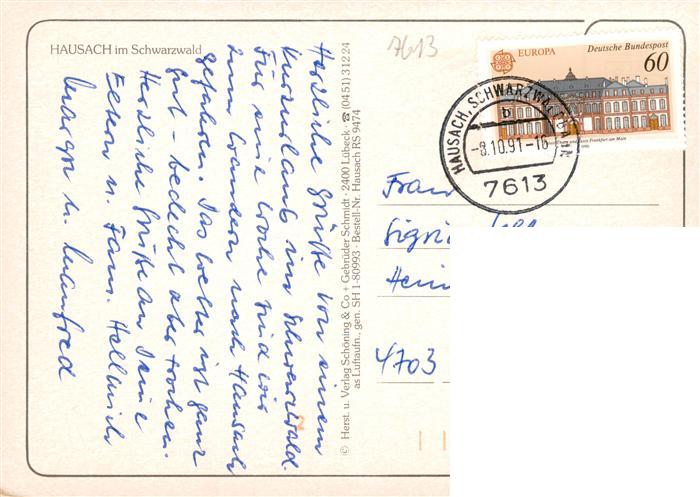 HAUSACH im Schwarzwald
7613
Herzliche Grüße von einem
Kurzurlaub im Schwarzwald.
Für eine Woche sind wir
zum Wandern nach Hausach
gefahren. Das Wetter ist ganz
gut - bedeckt aber trocken.
Herzliche Grüße an Deine
Eltern u. Fam. Hellmich
Margr u. Manfred
© Herst. u. Verlag Schöning & Co + Gebrüder Schmidt · 2400 Lübeck · ☎ (04 51) 3 12 24
as Luftaufn., gen. SH 1-80993 · Bestell-Nr. Hausach RS 9474
EUROPA
Deutsche Bundespost
60
HAUSACH, SCHWARZW
b
-8.10.91-16
7613
Frau
Sigri
Hein
4703